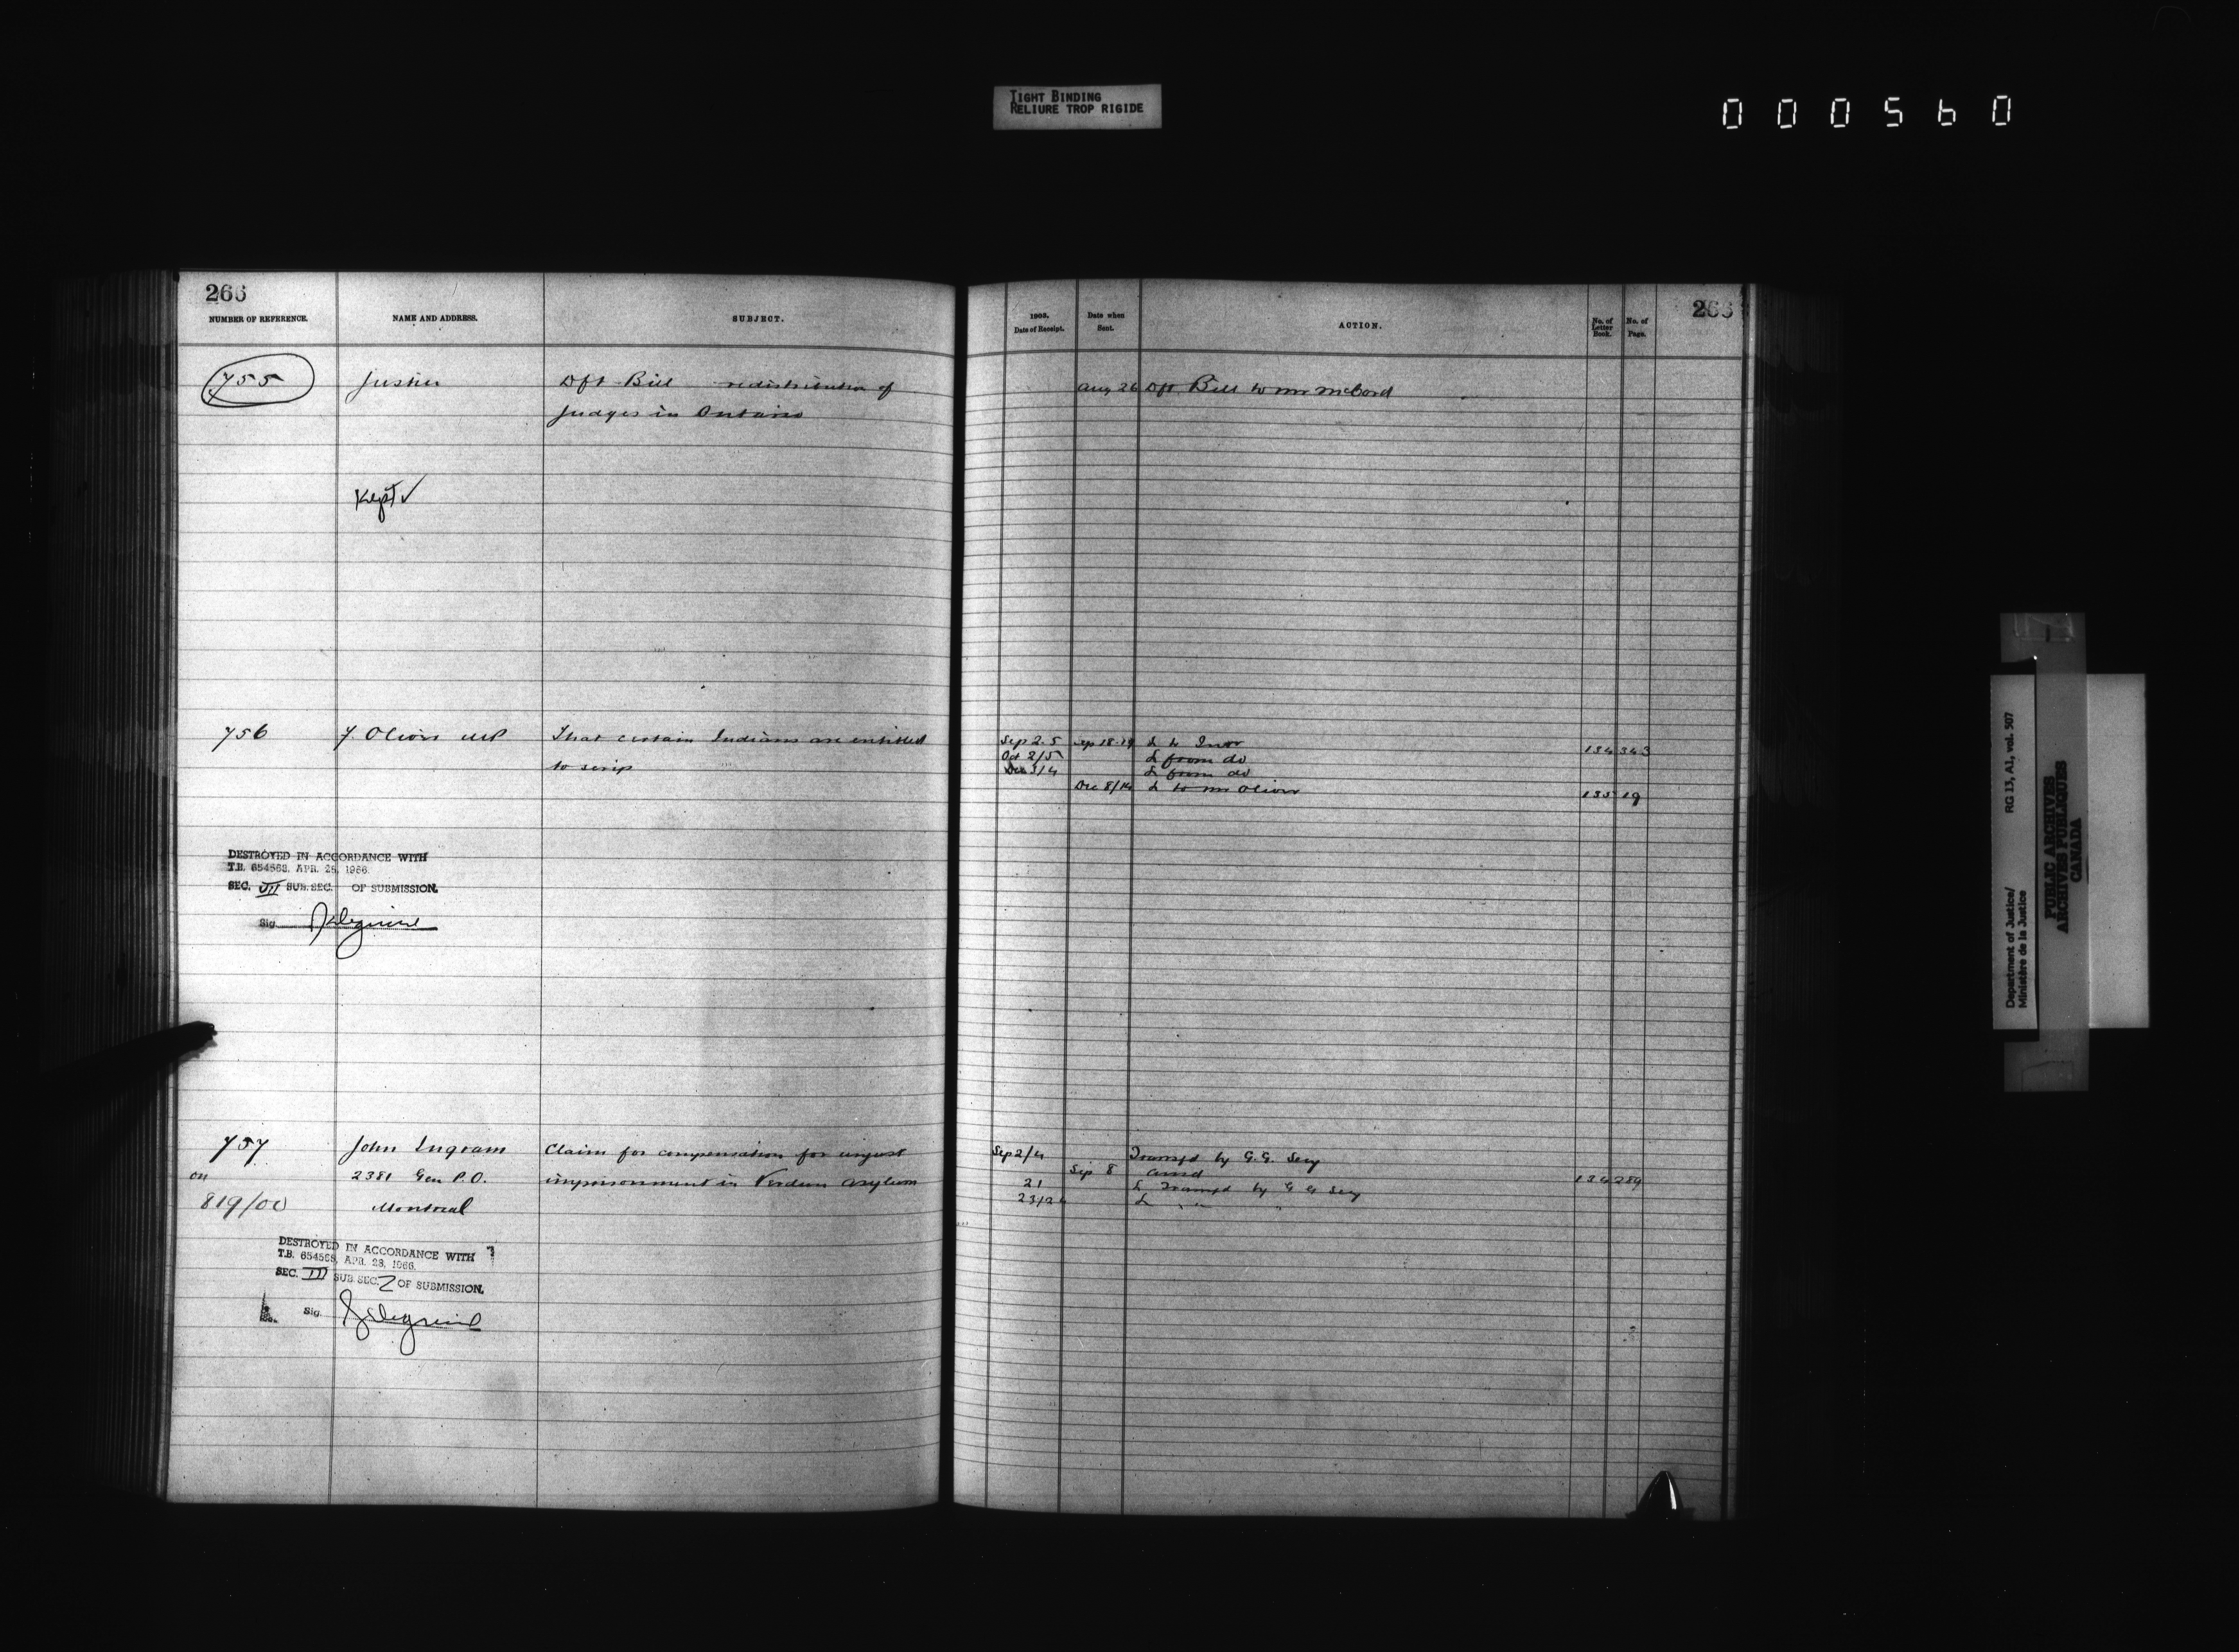 TIGHT BINDING
RELIURE TROP RIGIDE
000560
266
NUMBER OF REFERENCE.
NAME AND ADDRESS.
SUBJECT.
755
Justice
Dft Bill redistribution of
Judges in Ontario
Kept ✓
756
F. Oliver MP
That certain Indians are entitled
to scrip
DESTROYED IN ACCORDANCE WITH
T.B. 654568, APR. 28, 1966.
SEC. VII SUB. SEC. OF SUBMISSION.
Sig.
757
on
819/00
John Ingram
2381 Gen P.O.
Montreal
Claim for compensation for unjust
imprisonment in Verdun Asylum
DESTROYED IN ACCORDANCE WITH
T.B. 654568, APR. 28, 1966.
SEC. III SUB. SEC. 2 OF SUBMISSION.
Sig.
266
1903.
Date of Receipt.
Date when
Sent.
ACTION.
No. of
Letter
Book.
No. of
Page.
Aug 26 Dft Bill to Mr McCord
Sep 2-5 Sep 18-19 L to Inor 134 343
Oct 2/5 L from do
Dec 3/4 L from do
Dec 8/14 L to Mr Oliver 135 19
Sep 2/4 Transfd by G.G. Secy
Sep 8 Ansd 134 289
21 L Transfd by G G Secy
23/24 L " " "
Department of Justice/
Ministère de la Justice
RG 13, A1, vol. 507
PUBLIC ARCHIVES
ARCHIVES PUBLIQUES
CANADA